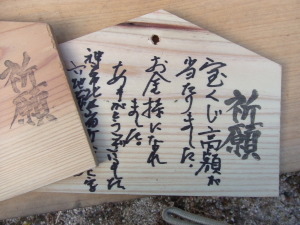 祈願
宝くじ高額が
当たりました。
お金持になれ
ました。
ありがとうございました
祈願